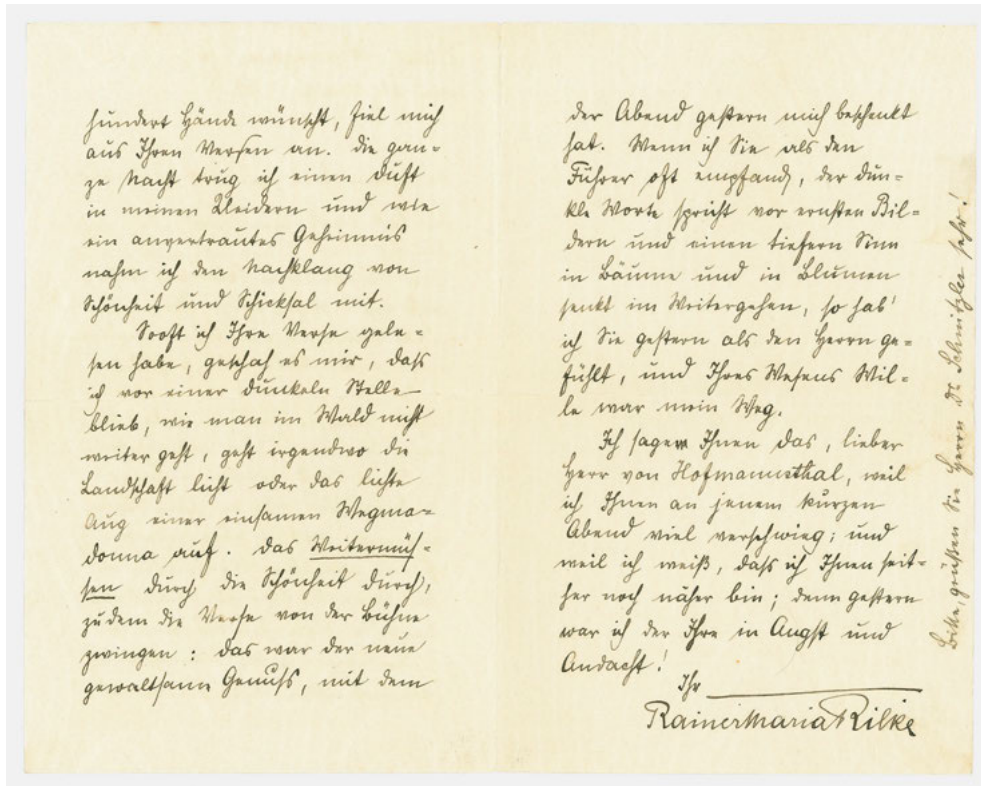 hundert Hände wünscht, fiel mich
aus Ihren Versen an. Die gan-
ze Nacht trug ich einen Duft
in meinen Kleidern und wie
ein anvertrautes Geheimnis
nahm ich den Nachklang von
Schönheit und Schicksal mit.
Sooft ich Ihre Verse gele-
sen habe, geschah es mir, daß
ich vor einer dunkeln Stelle
blieb, wie man im Wald nicht
weiter geht, geht irgendwo die
Landschaft licht oder das lichte
Aug einer einsamen Wegma-
donna auf. Das Weitermüs-
sen durch die Schönheit durch,
zu dem die Verse von der Bühne
zwingen: das war der neue
gewaltsame Genuß, mit dem
der Abend gestern mich beschenkt
hat. Wenn ich Sie als den
Führer oft empfand, der dun-
kle Worte spricht vor ernsten Bil-
dern und einen tiefern Sinn
in Bäume und in Blumen
senkt im Weitergehen, so hab'
ich Sie gestern als den Herrn ge-
fühlt, und Ihres Wesens Wil-
le war mein Weg.
Ich sage Ihnen das, lieber
Herr von Hofmannsthal, weil
ich Ihnen an jenem kurzen
Abend viel verschwieg; und
weil ich weiß, daß ich Ihnen seit-
her noch näher bin; denn gestern
war ich der Ihre in Angst und
Andacht!
Ihr
Rainer Maria Rilke
Bitte, grüßen Sie Herrn Dr. Schnitzler sehr!